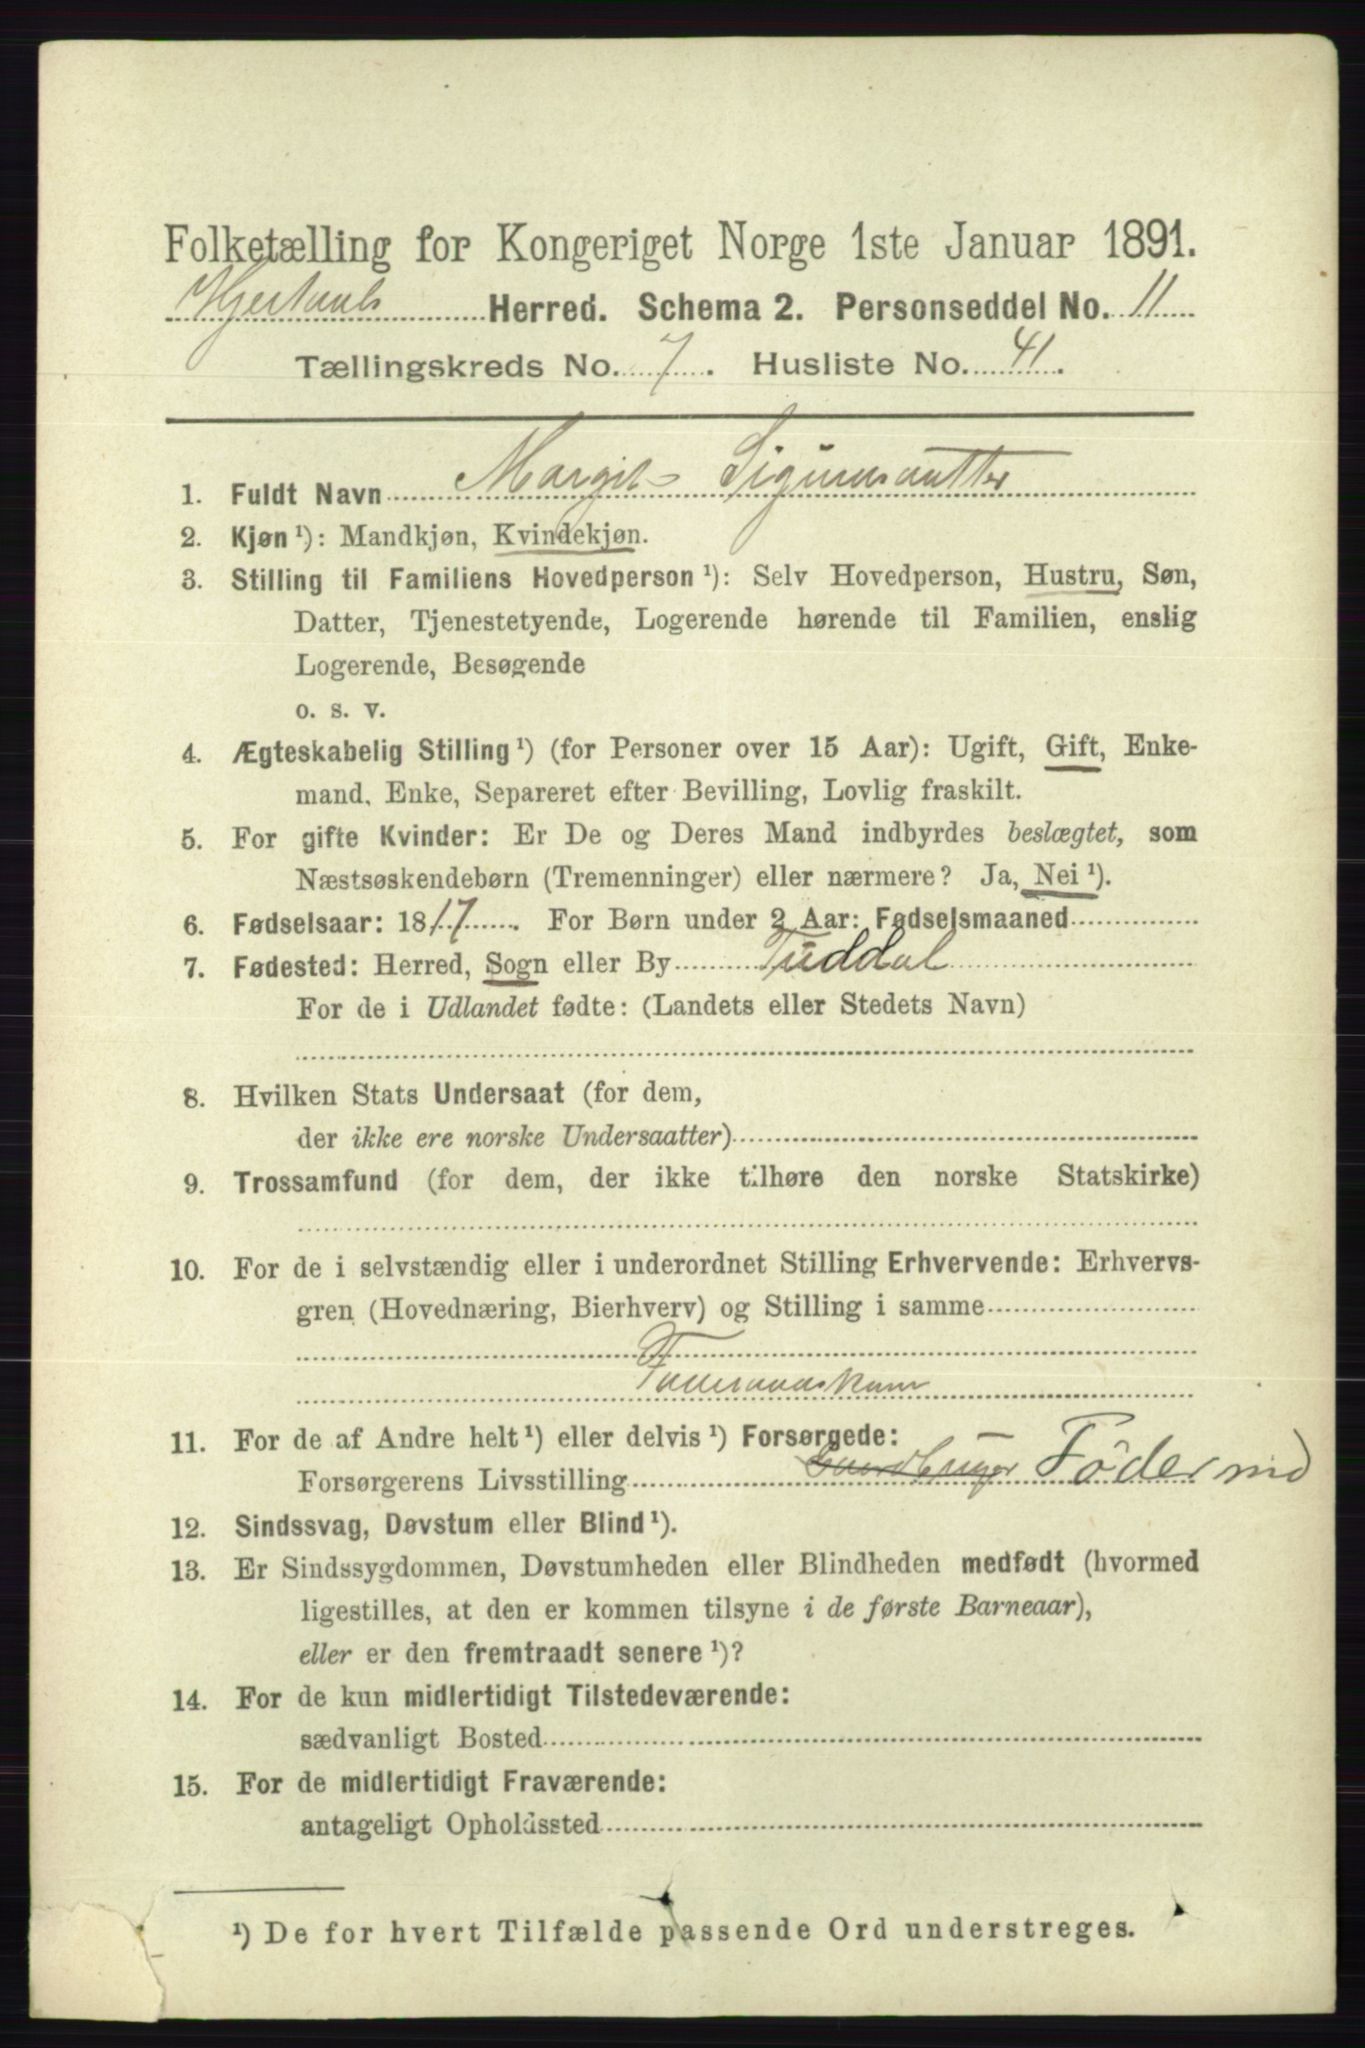 Folketælling for Kongeriget Norge 1ste Januar 1891.
Hjertdals Herred. Schema 2. Personseddel No. 11
Tællingskreds No. 7. Husliste No. 41.
1. Fuldt Navn Margit
2. Kjøn ¹): Mandkjøn, Kvindekjøn.
3. Stilling til Familiens Hovedperson ¹): Selv Hovedperson, Hustru, Søn,
Datter, Tjenestetyende, Logerende hørende til Familien, enslig
Logerende, Besøgende
o. s. v.
4. Ægteskabelig Stilling ¹) (for Personer over 15 Aar): Ugift, Gift, Enke-
mand, Enke, Separeret efter Bevilling, Lovlig fraskilt.
5. For gifte Kvinder: Er De og Deres Mand indbyrdes beslægtet, som
Næstsøskendebørn (Tremenninger) eller nærmere? Ja, Nei ¹).
6. Fødselsaar: 1817. For Børn under 2 Aar: Fødselsmaaned
7. Fødested: Herred, Sogn eller By Tuddal
For de i Udlandet fødte: (Landets eller Stedets Navn)
8. Hvilken Stats Undersaat (for dem,
der ikke ere norske Undersaatter)
9. Trossamfund (for dem, der ikke tilhøre den norske Statskirke)
10. For de i selvstændig eller i underordnet Stilling Erhvervende: Erhvervs-
gren (Hovednæring, Bierhverv) og Stilling i samme
Føderaadskone
11. For de af Andre helt ¹) eller delvis ¹) Forsørgede:
Forsørgerens Livsstilling Gaardbruger Föder md
12. Sindssvag, Døvstum eller Blind ¹).
13. Er Sindssygdommen, Døvstumheden eller Blindheden medfødt (hvormed
ligestilles, at den er kommen tilsyne i de første Barneaar),
eller er den fremtraadt senere ¹)?
14. For de kun midlertidigt Tilstedeværende:
sædvanligt Bosted
15. For de midlertidigt Fraværende:
antageligt Opholdssted
¹) De for hvert Tilfælde passende Ord understreges.